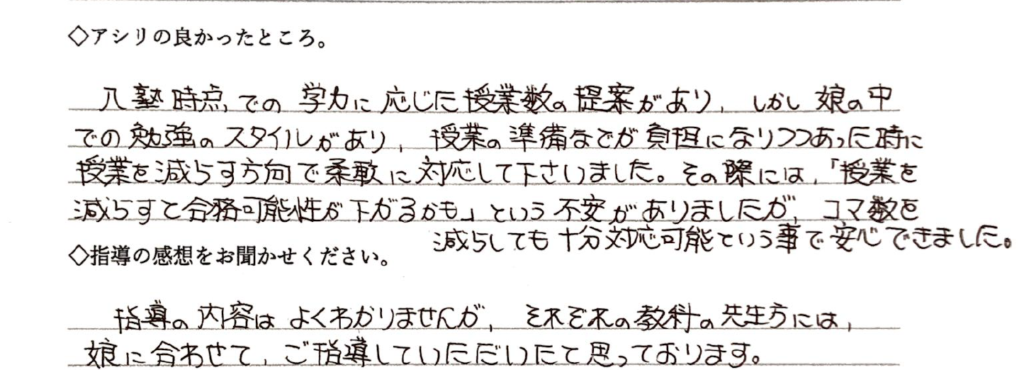 ◇アシリの良かったところ。
入塾時点での学力に応じた授業数の提案があり、しかし娘の中
での勉強のスタイルがあり、授業の準備などが負担になりつつあった時に
授業を減らす方向で柔軟に対応して下さいました。その際には、「授業を
減らすと合格可能性が下がるかも」という不安がありましたが、コマ数を
減らしても十分対応可能という事で安心できました。
◇指導の感想をお聞かせください。
指導の内容はよくわかりませんが、それぞれの教科の先生方には、
娘に合わせて、ご指導していただいたと思っております。